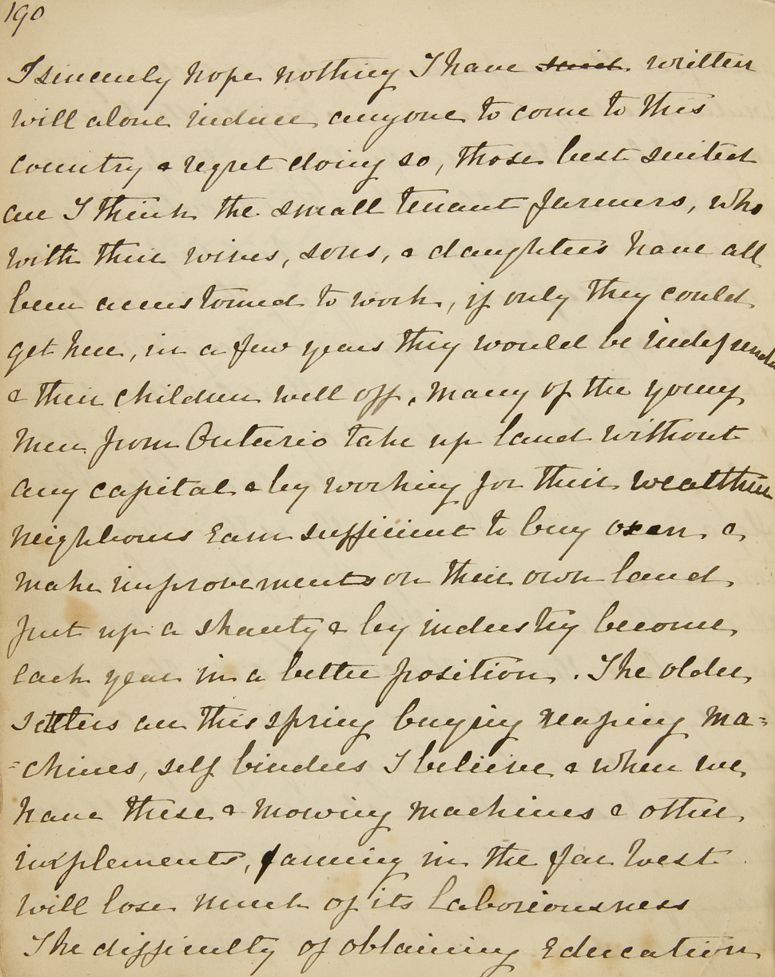 190
I sincerely hope nothing I have said written
will alone induce anyone to come to this
country & regret doing so, those best suited
are I think the small tenant farmers, who
with their wives, sons, & daughters have all
been accustomed to work, if only they could
get here, in a few years they would be independent
& their children well off, many of the young
men from Ontario take up land without
any capital & by working for their wealthier
neighbours earn sufficient to buy oxen &
make improvements on their own land,
put up a shanty & by industry become
each year in a better position. The older
settlers are this spring buying reaping ma=
=chines, self binders I believe & when we
have these & mowing machines & other
implements, farming in the far West
will lose much of its laboriousness
The difficulty of obtaining Education